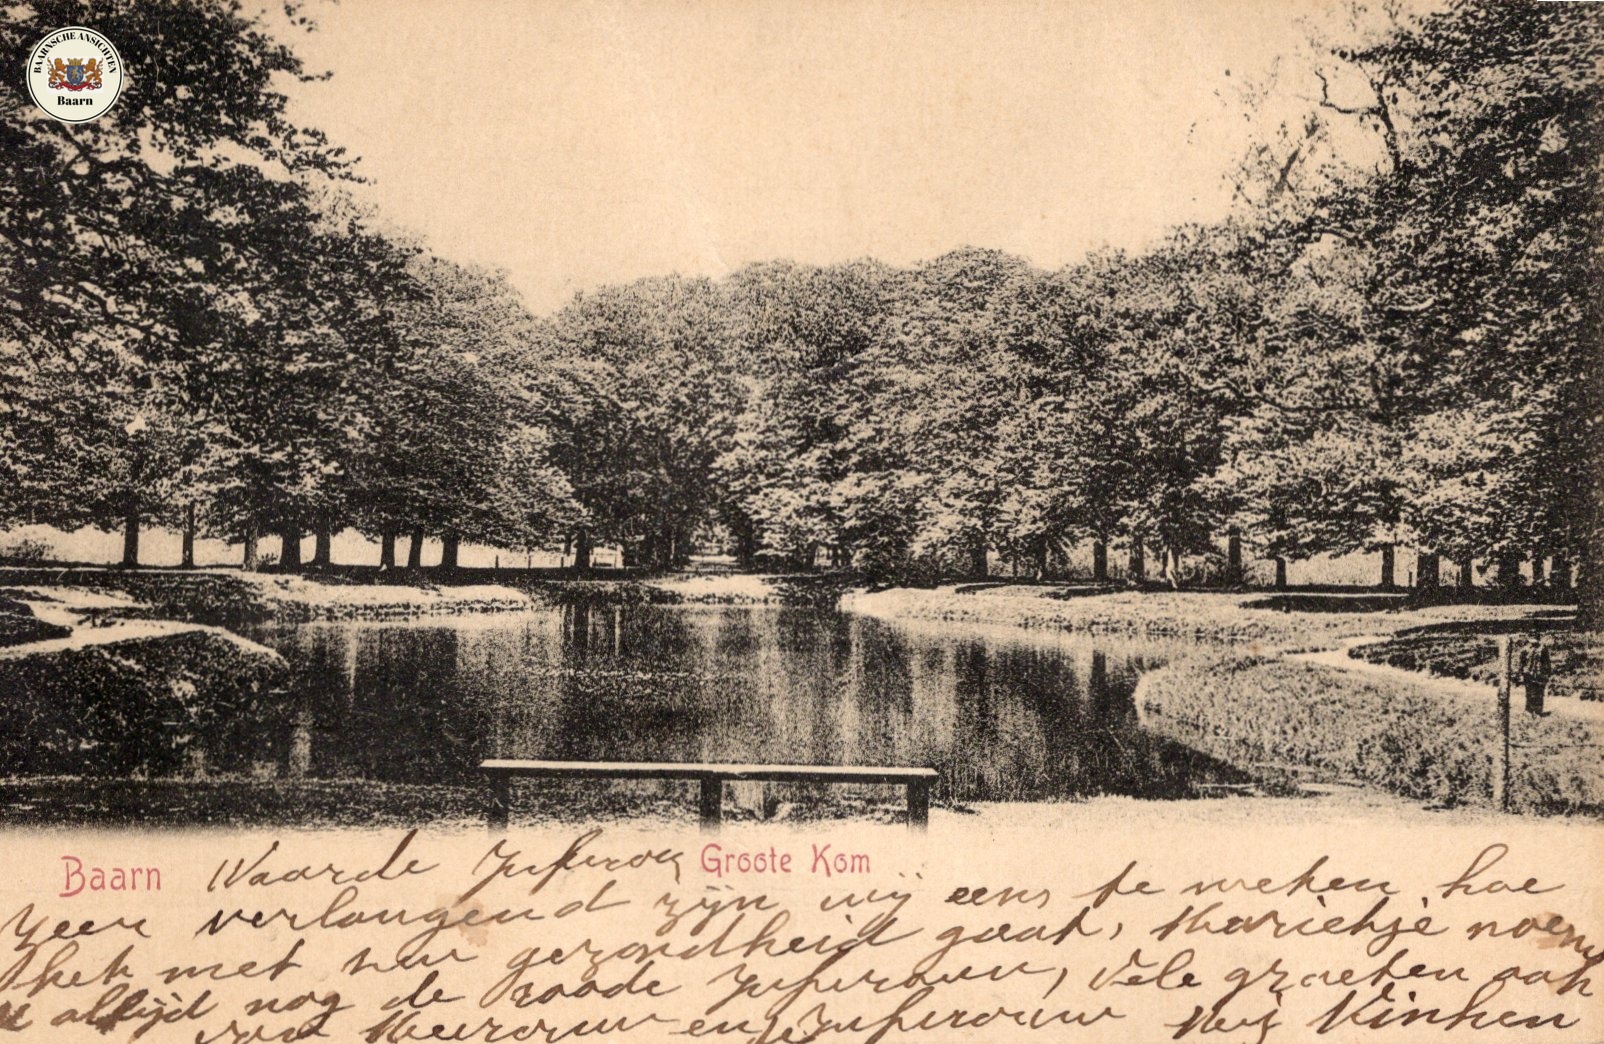 BAARNSCHE ANSICHTEN
Baarn
Baarn
Groote Kom
Waarde Juffrouw
zeer verlangend zijn wij eens te weten hoe
het met uw gezondheid gaat, Marietje noemt
u altijd nog de roode Juffrouw, Vele groeten ook
van Mevrouw en Juffrouw